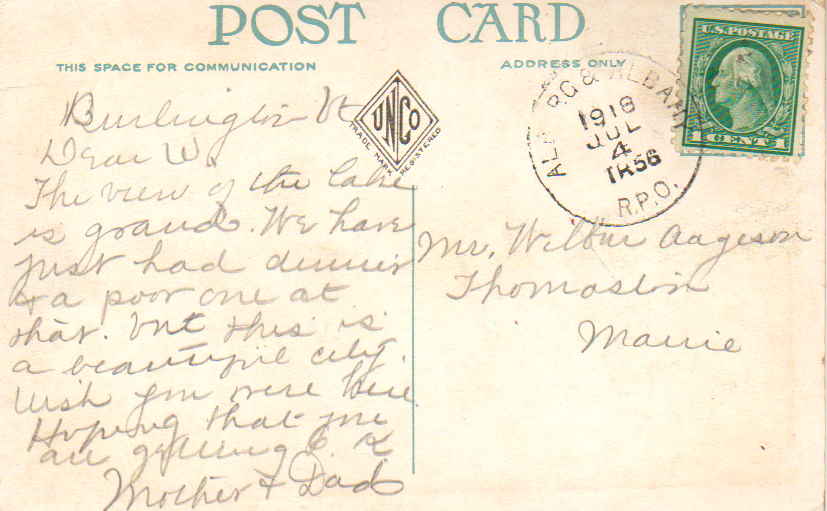 POST CARD
THIS SPACE FOR COMMUNICATION
ADDRESS ONLY
U.S. POSTAGE
1 CENT 1
ALBURG & ALBANY
1918
JUL
4
TR56
R.P.O.
UNCO
TRADE MARK REGISTERED
Burlington Vt
Dear W.
The view of the lake
is grand. We have
just had dinner
& a poor one at
that. but this is
a beautiful city.
Wish you were here
Hoping that you
are getting O. K.
Mother & Dad
Mr. Wilbur Aageson
Thomaston
Maine